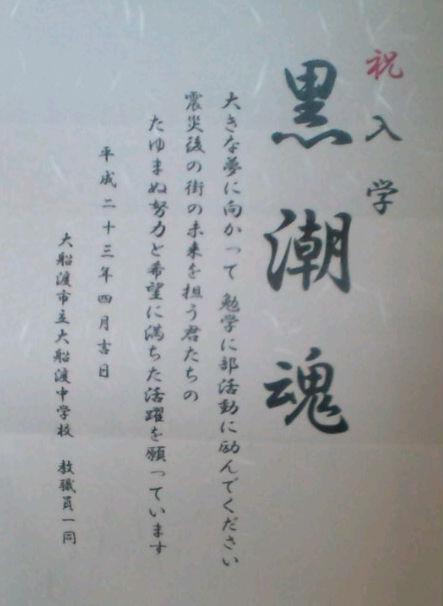 祝 入学
黒潮魂
大きな夢に向かって 勉学に部活動に励んでください
震災後の街の未来を担う君たちの
たゆまぬ努力と希望に満ちた活躍を願っています
平成二十三年四月吉日
大船渡市立大船渡中学校 教職員一同